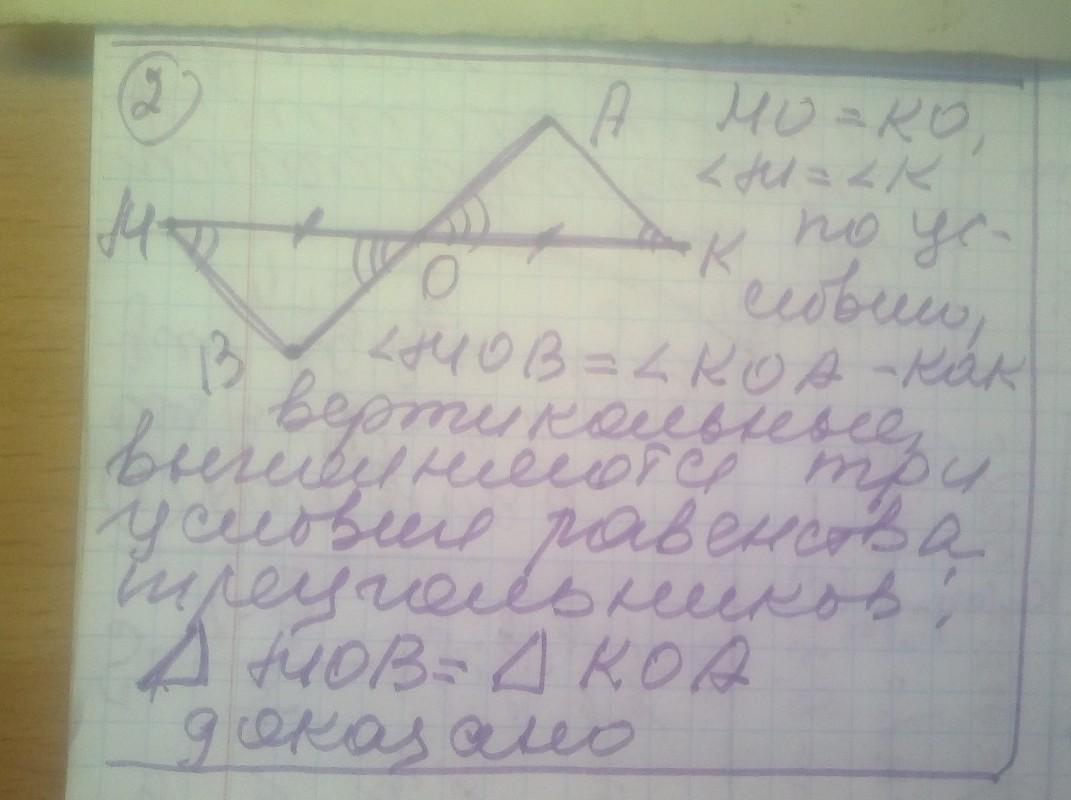 2
A
MO = KO,
∠M = ∠K
M
по ус-
O
K
ловию,
B
∠MOB = ∠KOA - как
вертикальные,
выполняются три
условия равенства
треугольников:
Δ MOB = Δ KOA
доказано